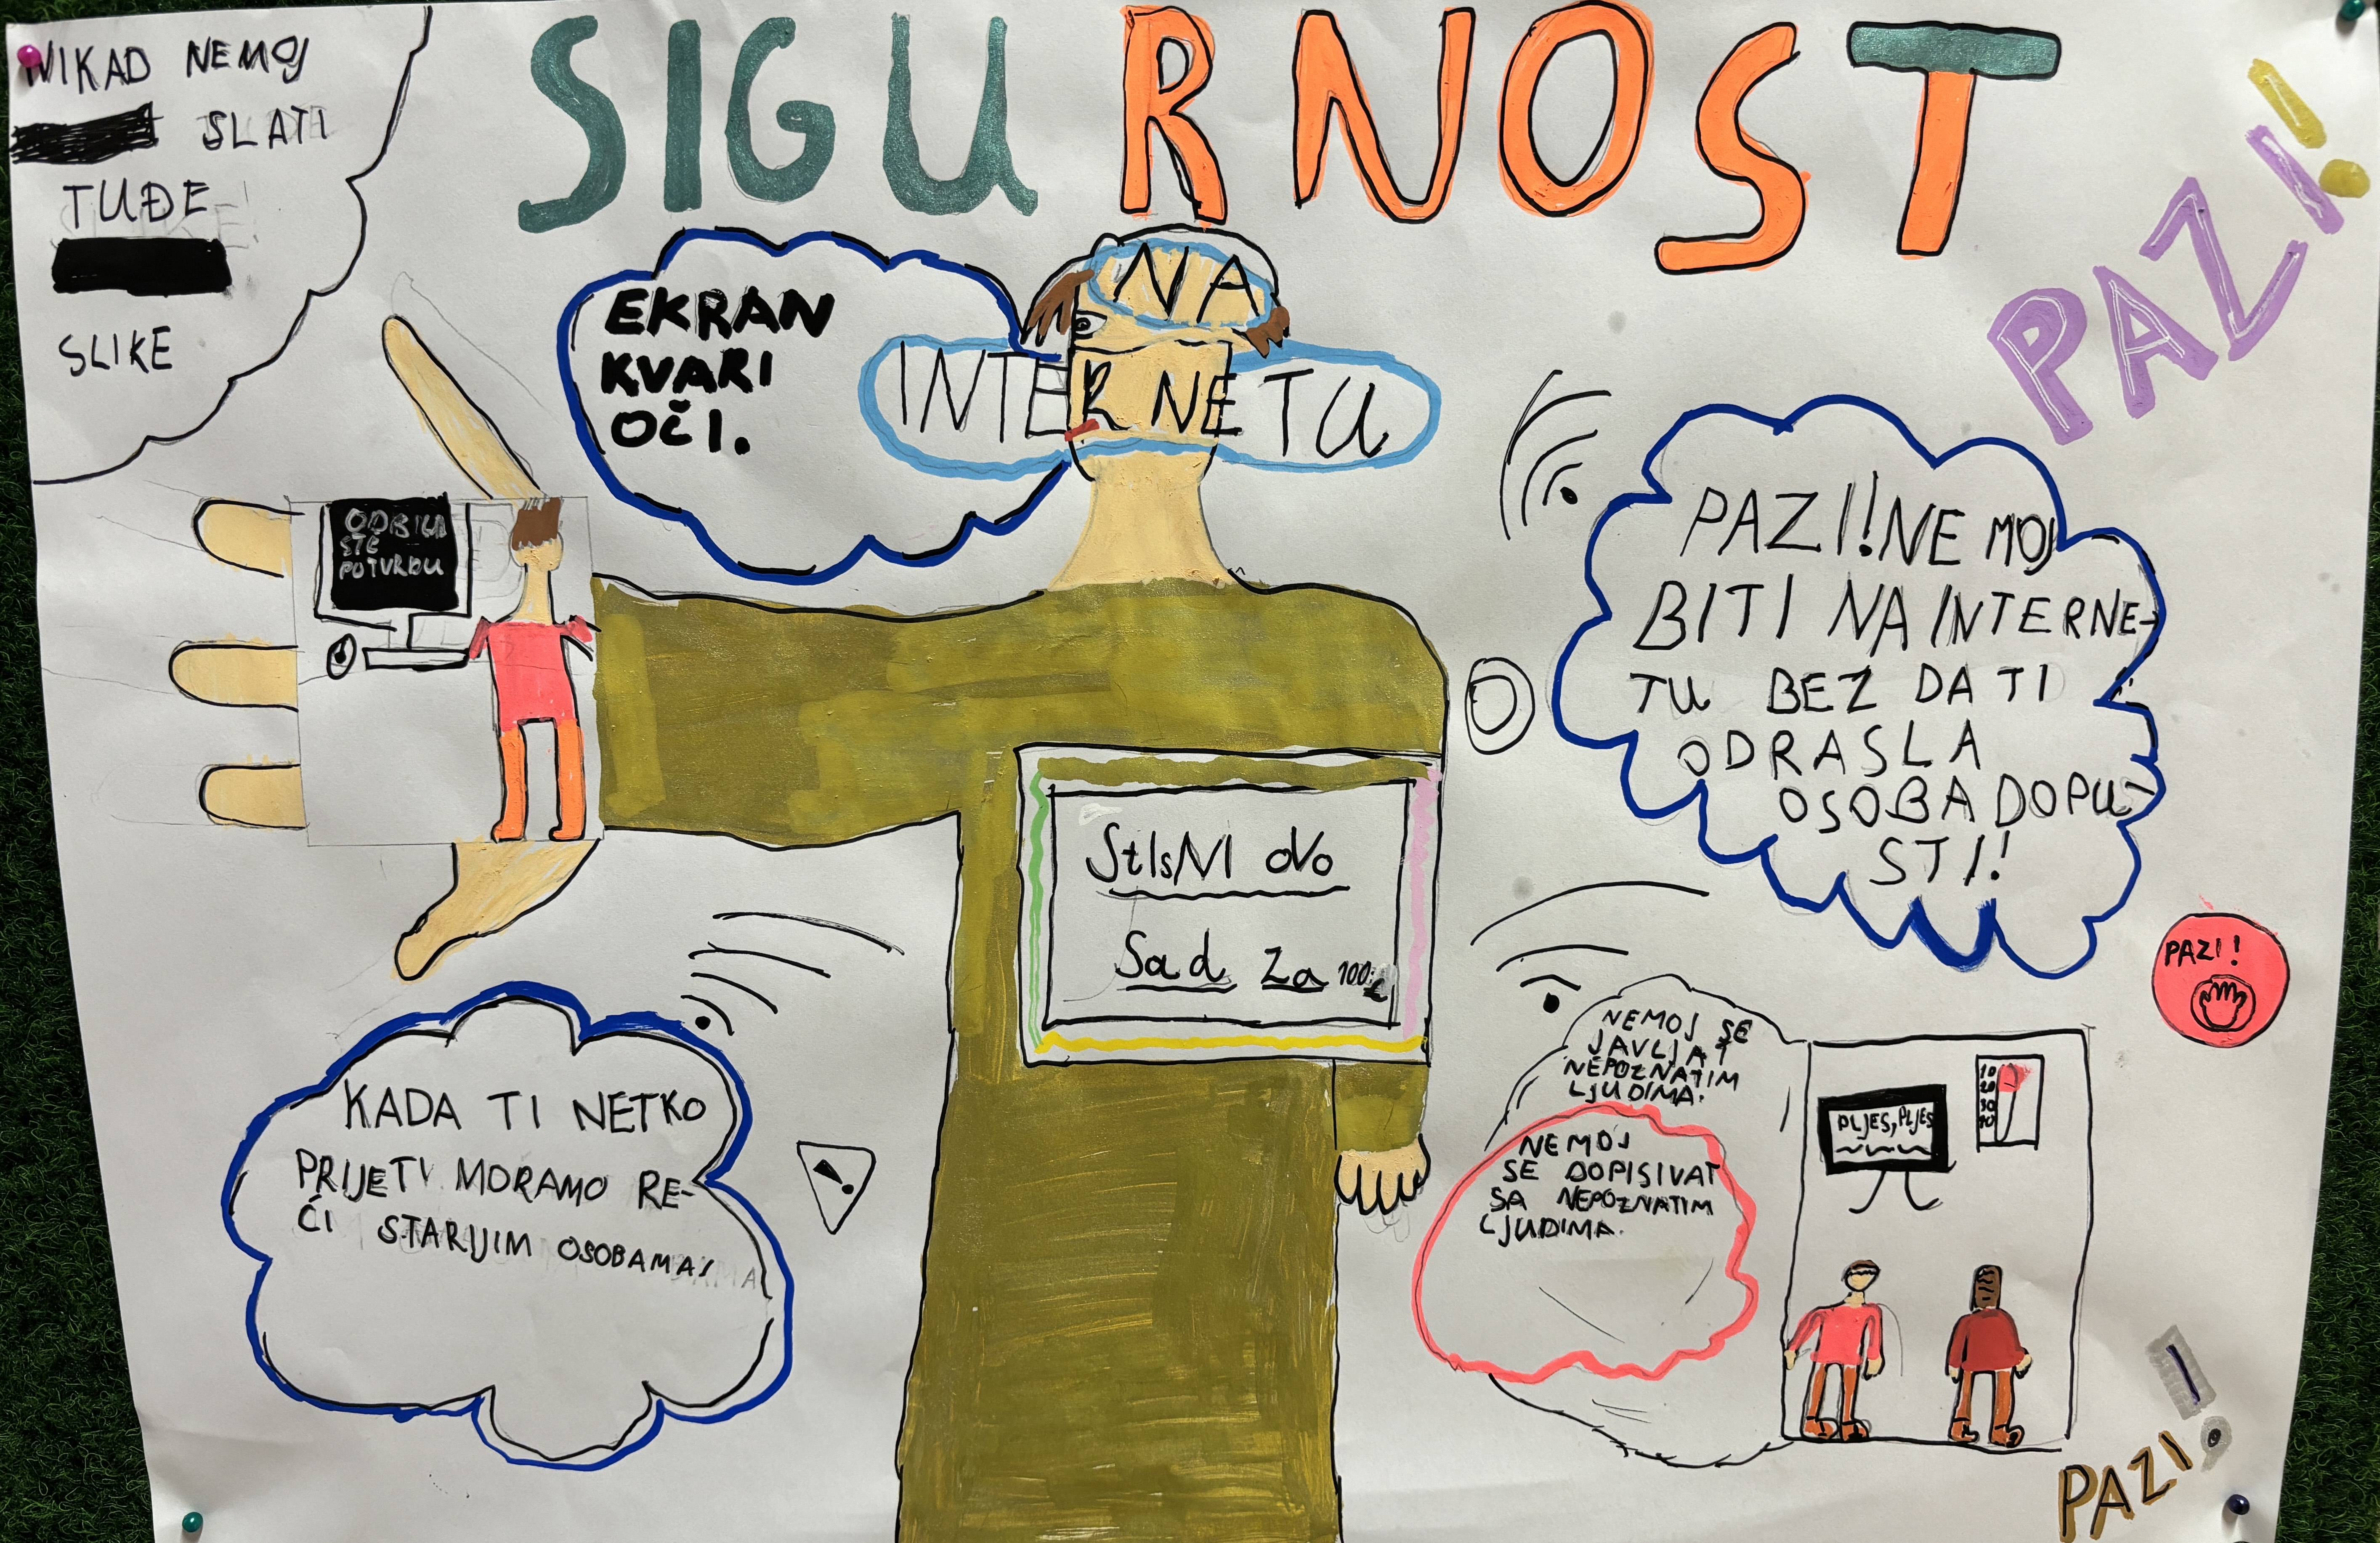 SIGURNOST
NA
INTERNETU
NIKAD NEMOJ
SLATI
TUĐE
SLIKE
EKRAN
KVARI
OČI.
PAZI!
ODBILI
STE
POTVRDU
PAZI! NEMOJ
BITI NA INTERNE-
TU BEZ DA TI
ODRASLA
OSOBA DOPU-
STI!
StIsNI oVo
Sad Za 100 €
PAZI!
KADA TI NETKO
PRIJETI MORAMO RE-
ĆI STARIJIM OSOBAMA!
NEMOJ SE
JAVLJAT
NEPOZNATIM
LJUDIMA.
NEMOJ
SE DOPISIVAT
SA NEPOZNATIM
LJUDIMA.
PLJES, PLJES
10
20
30
40
PAZI!